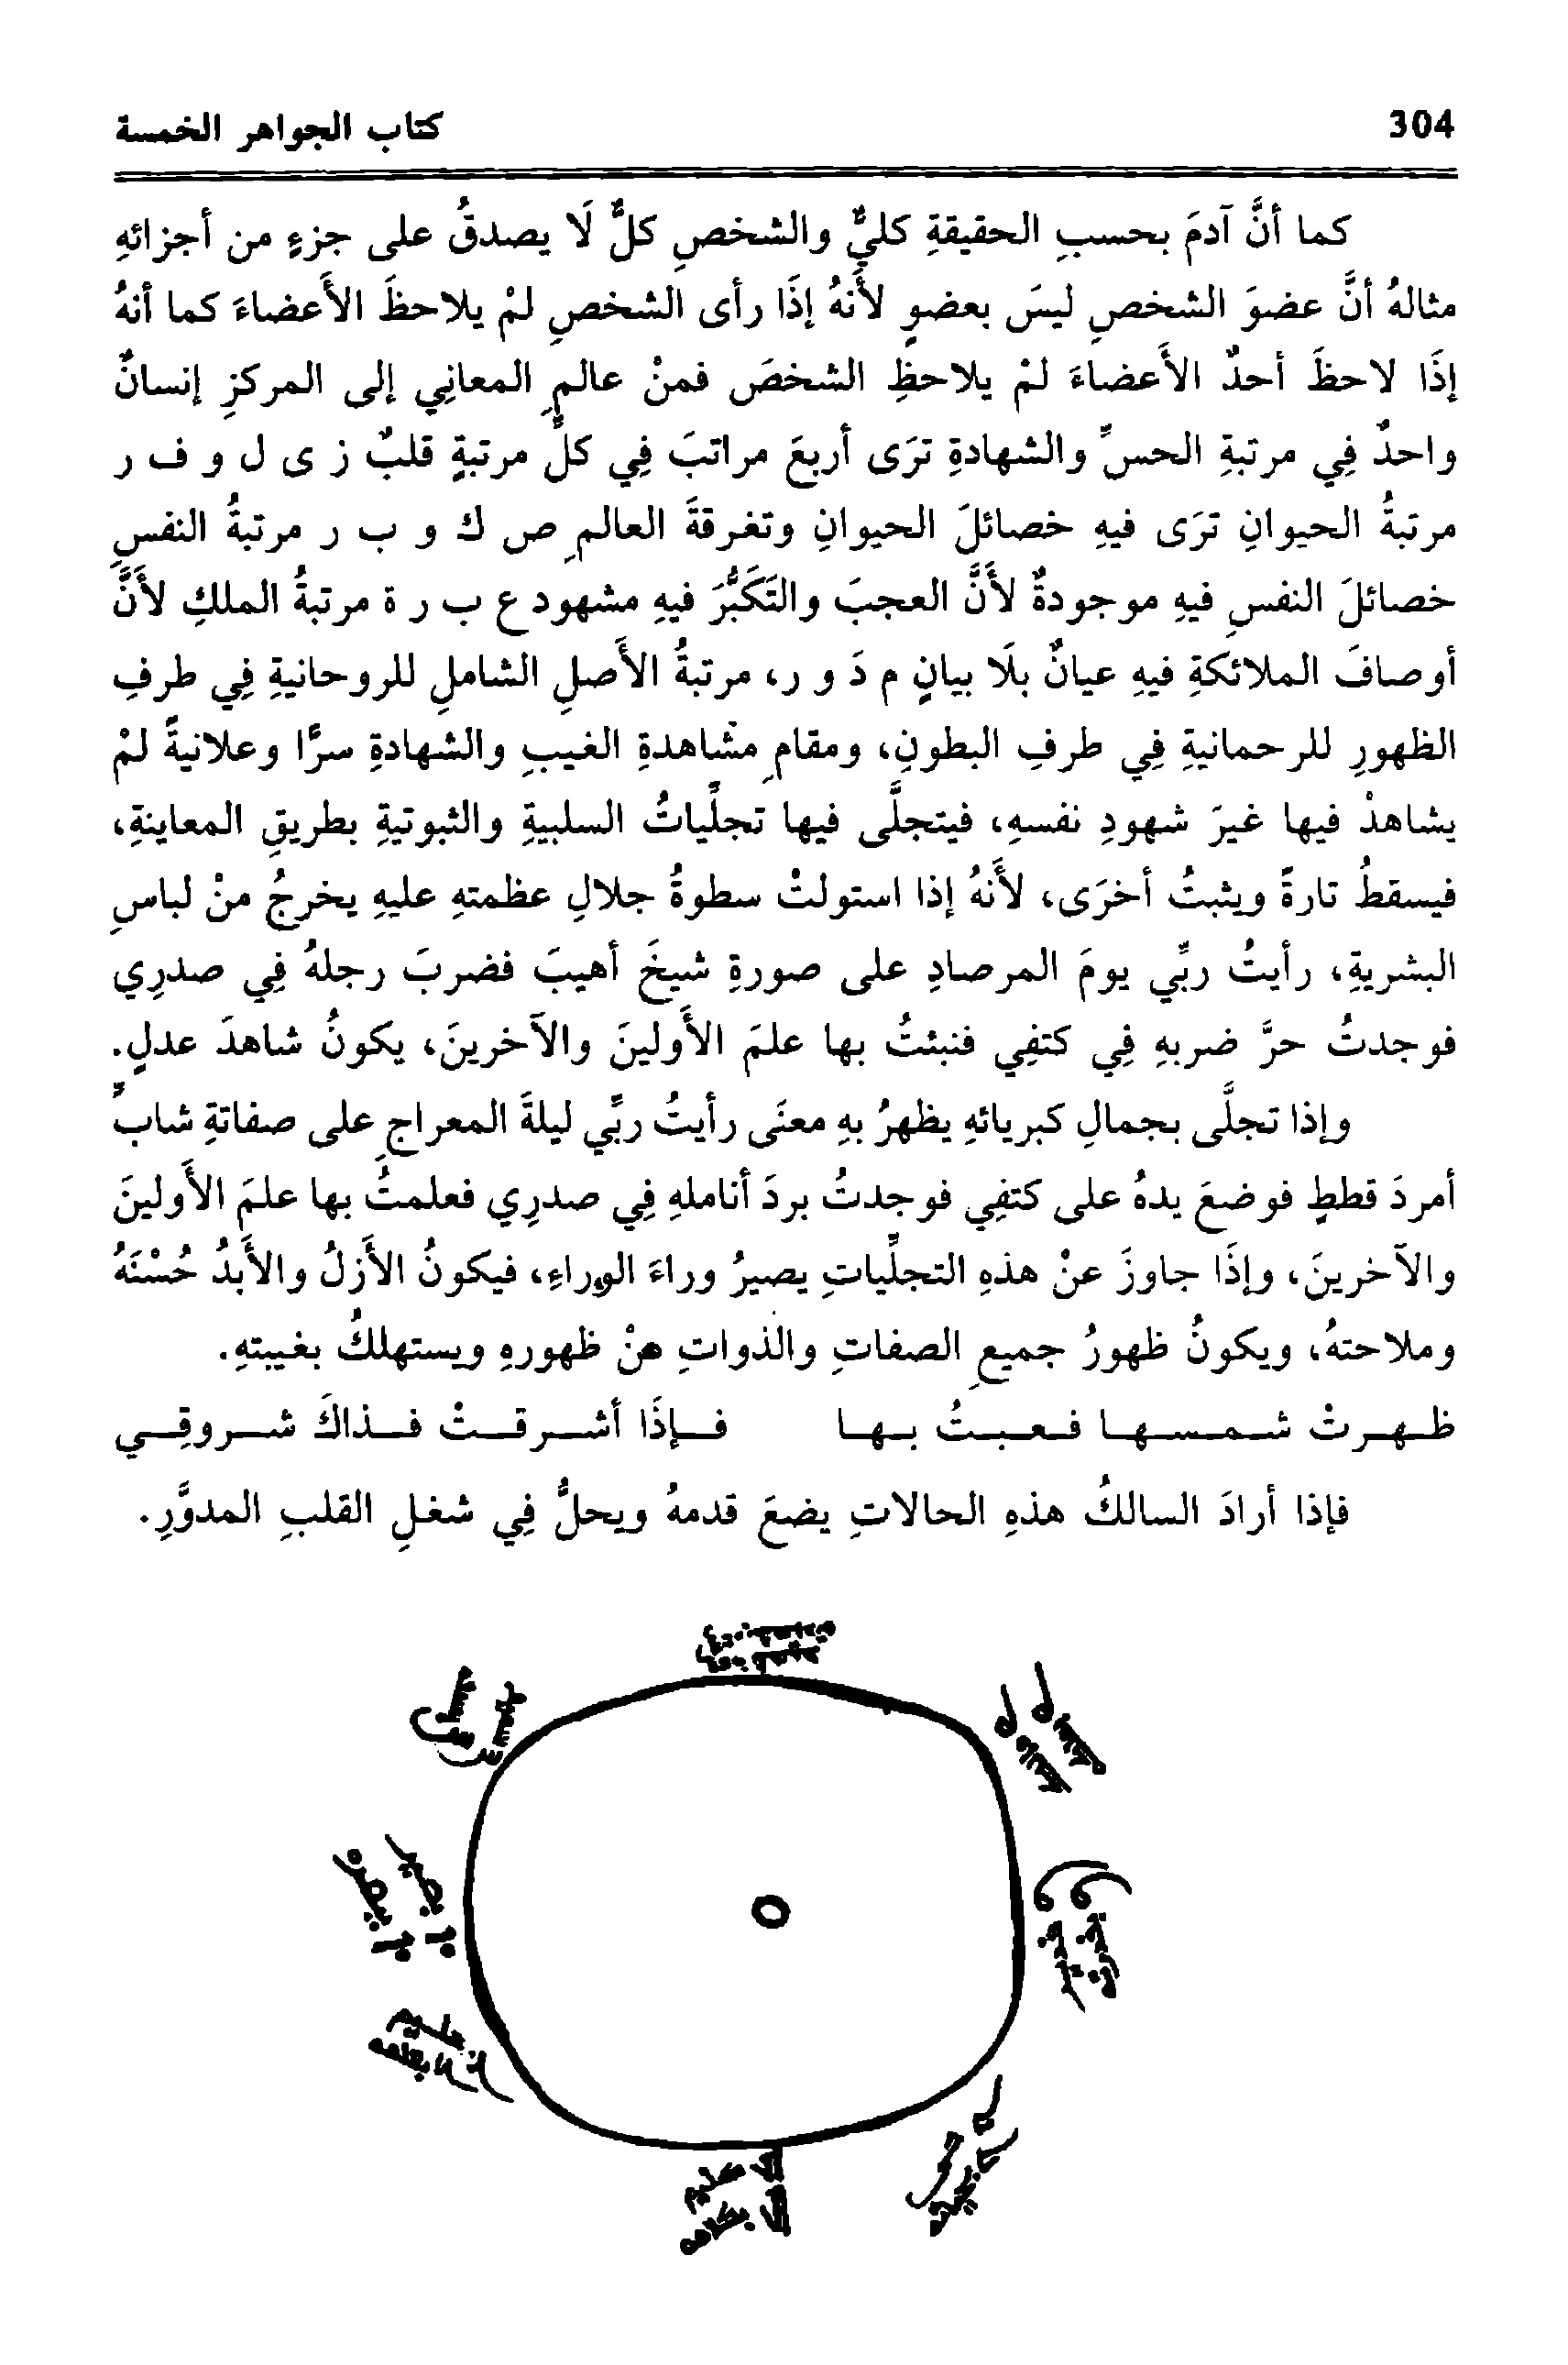 304 كتاب الجواهر الخمسة
كما أنَّ آدمَ بحسبِ الحقيقةِ كليٌّ والشخصِ كلٌّ لَا يصدقُ على جزءٍ من أجزائهِ
مثالهُ أنَّ عضوَ الشخصِ ليسَ بعضوٍ لأَنهُ إذَا رأى الشخصِ لمْ يلاحظَ الأَعضاءَ كما أنهُ
إذَا لاحظَ أحدٌ الأَعضاءَ لمْ يلاحظِ الشخصَ فمنْ عالمِ المعانِي إلى المركزِ إنسانٌ
واحدٌ فِي مرتبةِ الحسِّ والشهادةِ ترَى أربعَ مراتبَ فِي كلِّ مرتبةٍ قلبٌ ز ى ل و ف ر
مرتبةُ الحيوانِ ترَى فيهِ خصائلَ الحيوانِ وتفرقةَ العالمِ ص ك و ب ر مرتبةُ النفسِ
خصائلَ النفسِ فيهِ موجودةٌ لأَنَّ العجبَ والتَكَبُّرَ فيهِ مشهود ع ب ر ة مرتبةُ الملكِ لأَنَّ
أوصافَ الملائكةِ فيهِ عيانٌ بلَا بيانٍ م دَ و ر، مرتبةُ الأَصلِ الشاملِ للروحانيةِ فِي طرفِ
الظهورِ للرحمانيةِ فِي طرفِ البطونِ، ومقامِ مشَاهدةِ الغيبِ والشهادةِ سرًّا وعلانيةً لمْ
يشاهدْ فيها غيرَ شهودِ نفسهِ، فيتجلَّى فيها تجلِّياتُ السلبيةِ والثبوتيةِ بطريقِ المعاينةِ،
فيسقطُ تارةً ويثبتُ أخرَى، لأَنهُ إذا استولتْ سطوةُ جلالِ عظمتهِ عليهِ يخرجُ منْ لباسِ
البشريةِ، رأيتُ ربِّي يومَ المرصادِ على صورةِ شيخَ أهيبَ فضربَ رجلهُ فِي صدرِي
فوجدتُ حرَّ ضربهِ فِي كتفِي فنبئتُ بها علمَ الأَولينَ والآخرينَ، يكونُ شاهدَ عدلٍ.
وإذا تجلَّى بجمالِ كبريائهِ يظهرُ بهِ معنَى رأيتُ ربِّي ليلةَ المعراجِ على صفاتةِ شابٍّ
أمردَ قططٍ فوضعَ يدهُ على كتفِي فوجدتُ بردَ أناملهِ فِي صدرِي فعلمتُ بها علمَ الأَولينَ
والآخرينَ، وإذَا جاوزَ عنْ هذهِ التجلِّياتِ يصيرُ وراءَ الوراءِ، فيكونُ الأَزلُ والأَبدُ حُسْنَهُ
وملاحتهُ، ويكونُ ظهورُ جميعِ الصفاتِ والذواتِ منْ ظهورهِ ويستهلكُ بغيبتهِ.
ظهرتْ شمسها فعبتُ بها فإذَا أشرقتْ فذاكَ شروقِي
فإذا أرادَ السالكُ هذهِ الحالاتِ يضعَ قدمهُ ويحلُّ فِي شغلِ القلبِ المدوَّرِ.